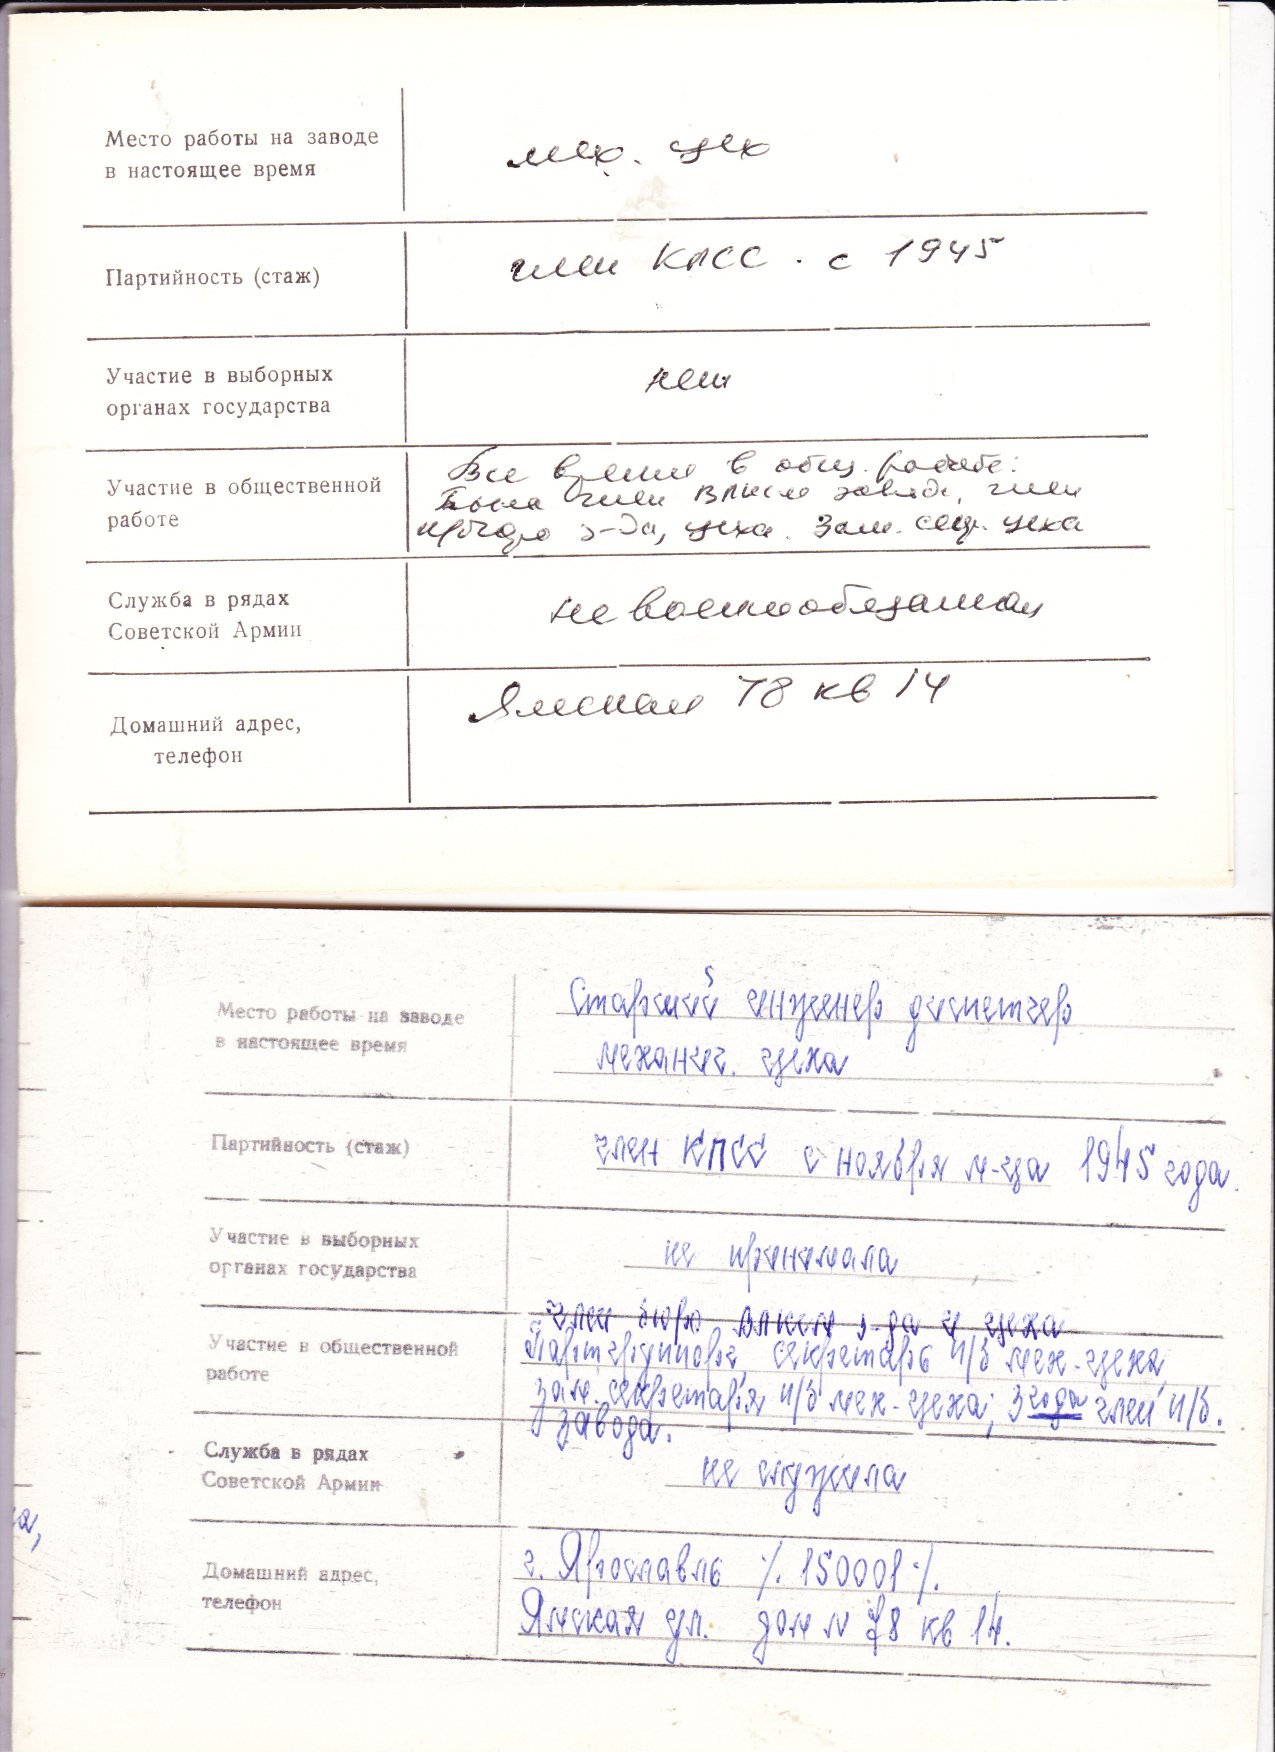 Место работы на заводе
в настоящее время
мех. цех
Партийность (стаж)
член КПСС . с 1945
Участие в выборных
органах государства
нет
Участие в общественной
работе
Все время в общ. работе:
была член ВЛКСМ завода, член
з-да, цеха. Зам. секр. цеха
Служба в рядах
Советской Армии
не военнообязанная
Домашний адрес,
телефон
Ямская 78 кв 14
Место работы на заводе
в настоящее время
Старший инженер диспетчер
механич. цеха
Партийность (стаж)
член КПСС с ноября м-ца 1945 года.
Участие в выборных
органах государства
не принимала
Участие в общественной
работе
член бюро ВЛКСМ з-да и цеха
Партгрупорг, секретарь п/б мех-цеха,
зам. секретаря п/б мех-цеха; 3 года член п/б.
завода.
Служба в рядах
Советской Армии
не служила
а,
Домашний адрес,
телефон
г. Ярославль /. 150001 /.
Ямская ул. дом № 78 кв 14.